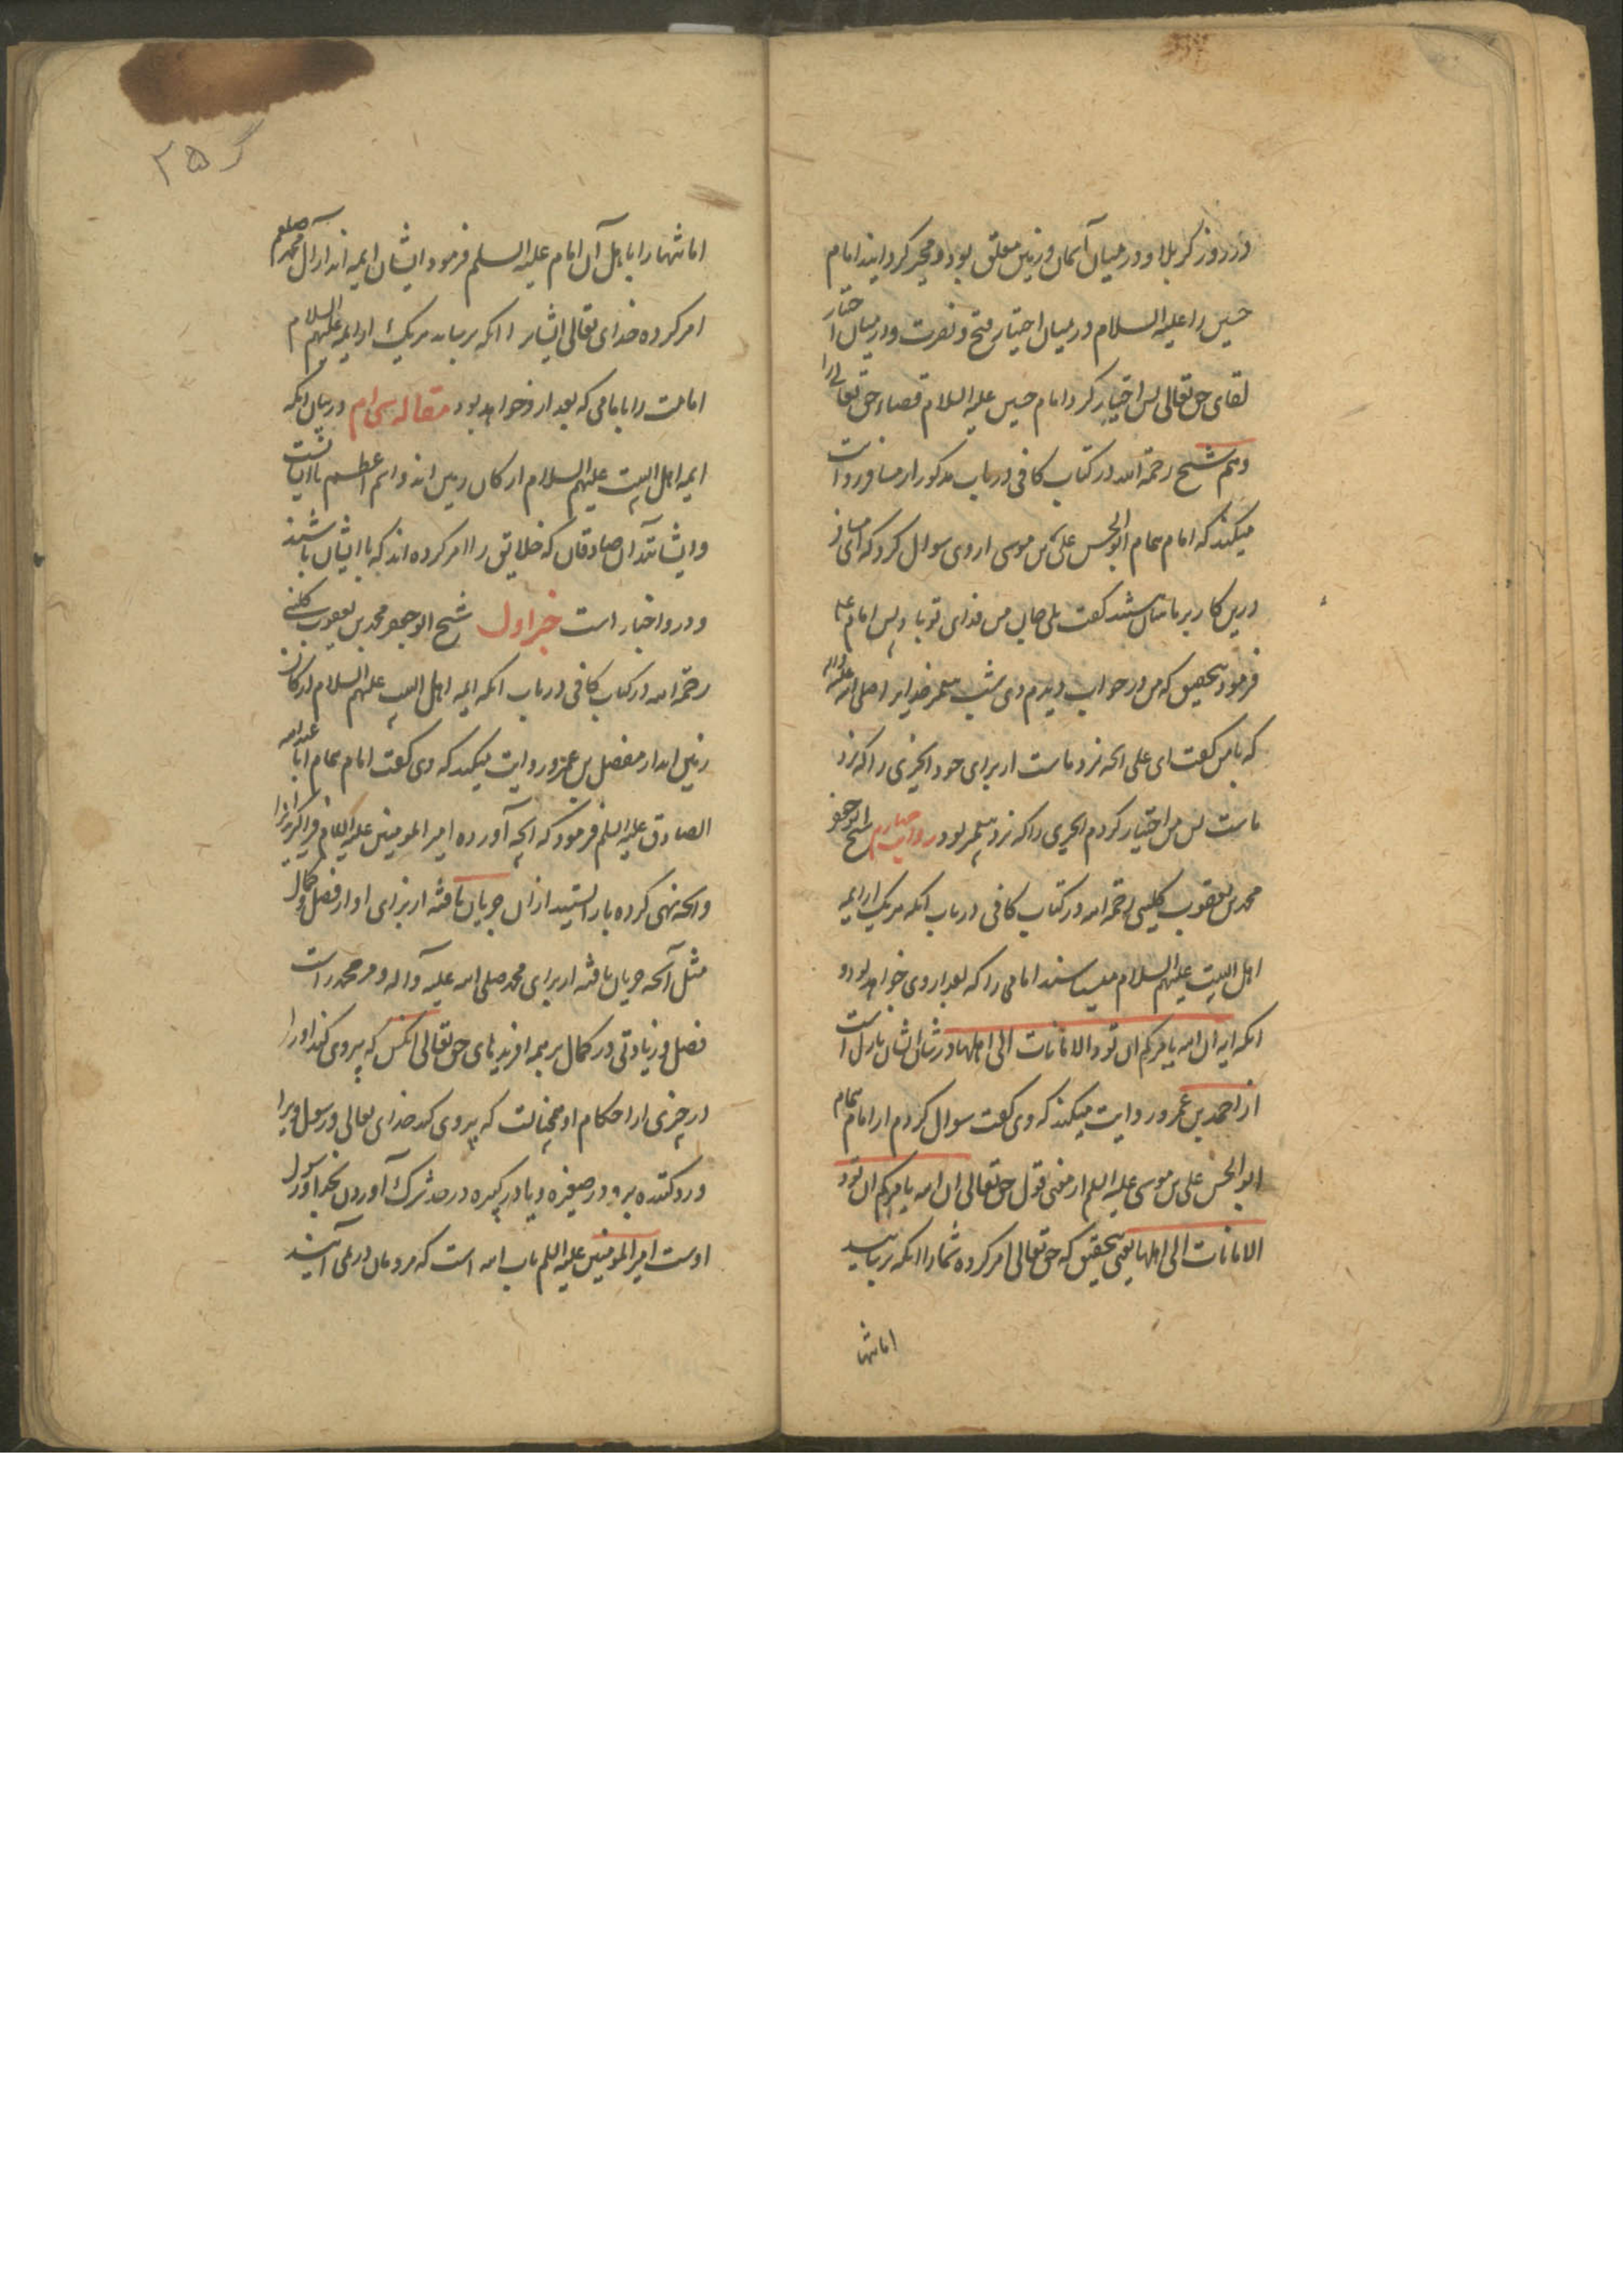 در روز کربلا و در میان آسمان و زمین معلق بود و مخیر کردانید امام
حسین را علیه السلام در میان اختیار فتح و نصرت و در میان اختیار
لقای حق تعالی پس اختیار کرد امام حسین علیه السلام قضاء حق تعالی را
و هم شیخ رحمة الله در کتاب کافی در باب مذکور از مسافر روایت
میکند که امام همام ابو الحسن علی بن موسی از وی سوال کرد که ای مسافر
درین کاریز ماهیان هستند کفت بلی جان من فدای تو باد پس امام ع
فرمود بتحقیق که من در خواب دیدم دی شب پیغمبر خدایرا صلی الله علیه واله
که با من کفت ای علی انچه نزد ماست از برای خود انچیزی را که نزد
ماست پس من اختیار کردم انچیزی را که نزد پیغمبر بود روایت چهارم شیخ ابو جعفر
محمد بن یعقوب کلینی رحمة الله در کتاب کافی در باب انکه هر یک از ایمه
اهل البیت علیهم السلام میشناسند امامی را که بعد از وی خواهد بود و
انکه ایه ان الله یامرکم ان تودوا الامانات الی اهلها در شان ایشان نازل است
از احمد بن عمر روایت میکند که وی کفت سوال کردم از امام همام
ابو الحسن علی بن موسی علیه السلم از معنی قول حق تعالی ان الله یامرکم ان تودوا
الامانات الی اهلها یعنی بتحقیق که حق تعالی امر کرده شما را انکه برسانید
امانتها
۲۵ گ
امانتها را باهل آن امام علیه السلم فرمود ایشان ایمه اند از آل محمد صلعم
امر کرده خدای تعالی ایشان را انکه برساند هر یک از ایمه علیهم السلام
امامت را بامامی که بعد از و خواهد بود مقاله سی ام در بیان انکه
ایمه اهل البیت علیهم السلام ارکان زمین اند و اسم اعظم با ایشانست
و ایشانند آن صادقان که خلایق را امر کرده اند که با ایشان باشند
و در و اخبار است خبر اول شیخ ابو جعفر محمد بن یعقوب کلینی
رحمة الله در کتاب کافی در باب انکه ایمه اهل البیت علیهم السلام ارکان
زمین اند از مفضل بن عمر روایت میکند که وی کفت امام همام ابا عبد الله
الصادق علیه السلم فرمود که انچه آورده امیر المومنین علیه السلام فرا کیرید انرا
و انچه نهی کرده باز ایستید از ان جریان یافته از برای او از فضل و کمال
مثل آنچه جریان یافته از برای محمد صلی الله علیه و آله و مر محمد راست
فضل و زیادتی در کمال بر همه افریدهای حق تعالی انکس که پیروی کند او را
در چیزی از احکام او همچنانست که پیروی کند خدای تعالی و رسول ویرا
و رد کننده برو در صغیره و یا در کبیره در حد شرک آوردن بخدا و رسول
اوست امیر المومنین علیه السلم باب الله است که مردمان در می آیند